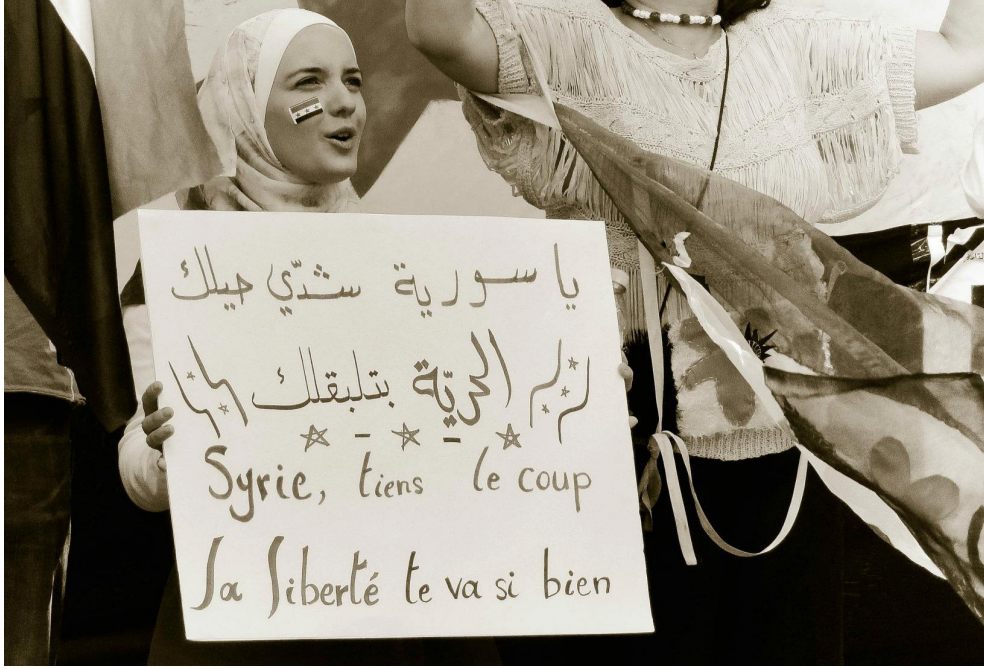 يا سورية شدّي حيلك
الحريّة بتلبقلك
Syrie, tiens le coup
La liberté te va si bien